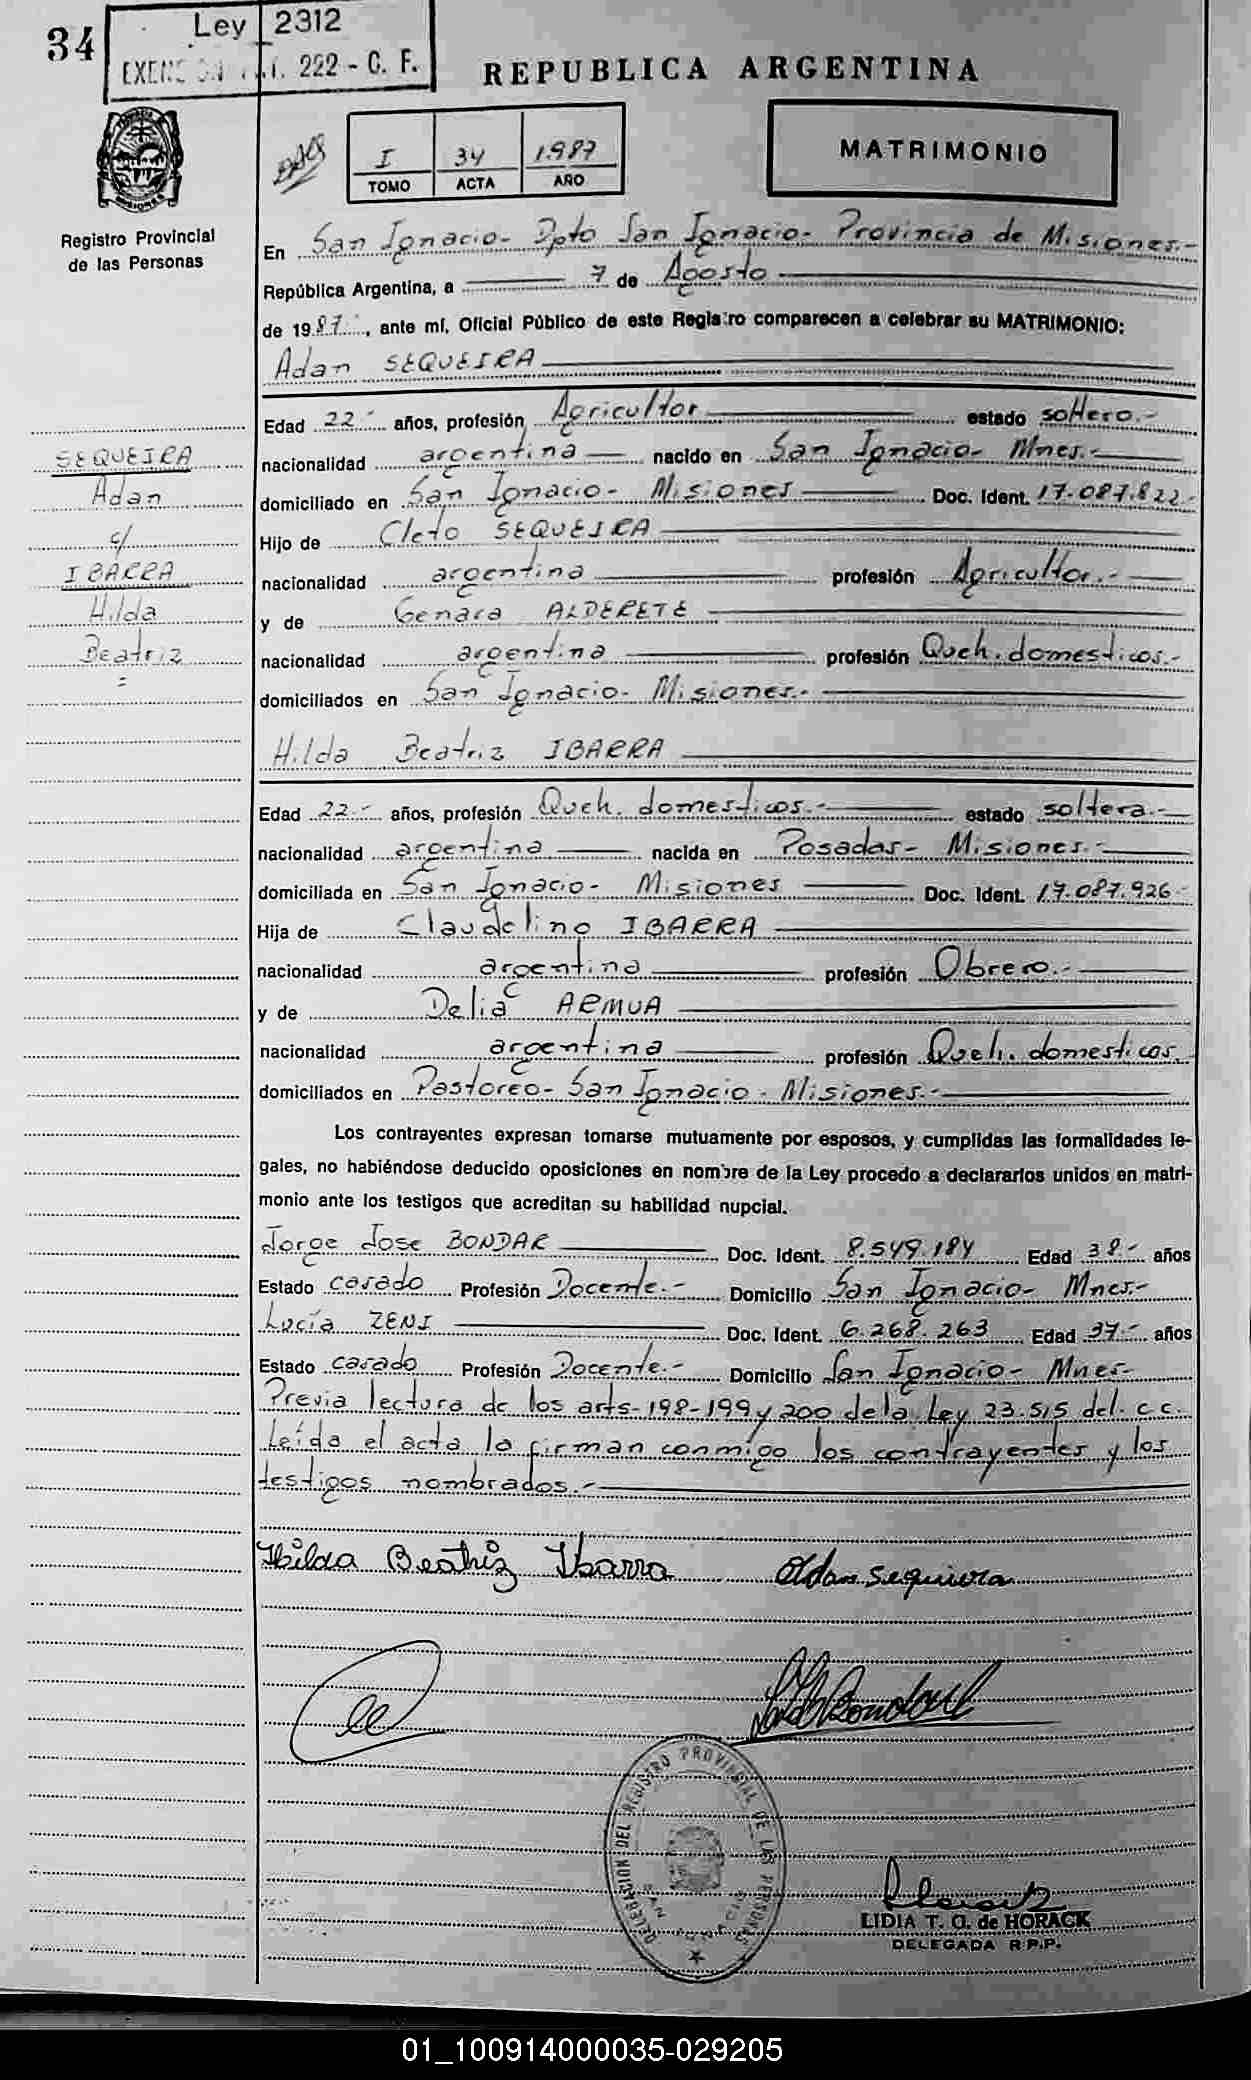 34
Ley 2312
222 - C. F.
REPUBLICA ARGENTINA
MATRIMONIO
I 34 1987
TOMO ACTA AÑO
Registro Provincial
de las Personas
En San Ignacio- Dpto San Ignacio- Provincia de Misiones.-
República Argentina, a 7 de Agosto
de 1987, ante mí, Oficial Público de este Registro comparecen a celebrar su MATRIMONIO:
Adan SEQUEIRA
Edad 22.- años, profesión Agricultor estado soltero.-
nacionalidad argentina nacido en San Ignacio- Mnes.-
domiciliado en San Ignacio- Misiones Doc. Ident. 17.087.822.-
Hijo de Cleto SEQUEIRA
nacionalidad argentina profesión Agricultor.-
y de Genara ALDERETE
nacionalidad argentina profesión Queh. domesticos.-
domiciliados en San Ignacio- Misiones.-
SEQUEIRA
Adan
c/
IBARRA
Hilda
Beatriz
=
Hilda Beatriz IBARRA
Edad 22.- años, profesión Queh. domesticos.- estado soltera.-
nacionalidad argentina nacida en Posadas- Misiones.-
domiciliada en San Ignacio- Misiones Doc. Ident. 17.087.926.-
Hija de Claudelino IBARRA
nacionalidad argentina profesión Obrero.-
y de Delia ARMUA
nacionalidad argentina profesión Queh. domesticos.
domiciliados en Pastoreo- San Ignacio- Misiones.-
Los contrayentes expresan tomarse mutuamente por esposos, y cumplidas las formalidades le-
gales, no habiéndose deducido oposiciones en nombre de la Ley procedo a declararlos unidos en matri-
monio ante los testigos que acreditan su habilidad nupcial.
Jorge Jose BONDAR Doc. Ident. 8.549.184 Edad 38.- años
Estado casado Profesión Docente.- Domicilio San Ignacio- Mnes.-
Lucía ZENI Doc. Ident. 6.268.263 Edad 37.- años
Estado casado Profesión Docente.- Domicilio San Ignacio- Mnes-
Previa lectura de los arts-198-199 y 200 de la Ley 23.515 del c.c.
Leída el acta la firman conmigo los contrayentes y los
testigos nombrados.-
Hilda Beatriz Ibarra Adan sequiera
DELEGACION DEL REGISTRO PROVINCIAL DE LAS PERSONAS
SAN IGNACIO
LIDIA T. O. de HORACK
DELEGADA R.P.P.
01_100914000035-029205